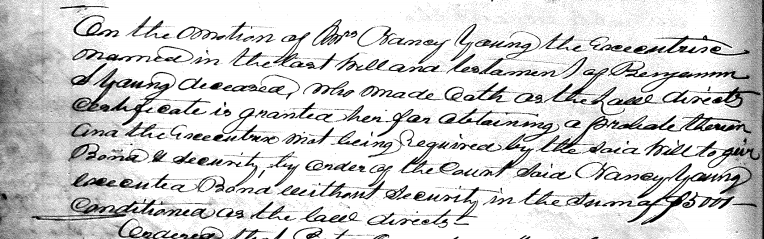 On the motion of Mrs Nancy Young the Executrix
named in the last Will and testament of Benjamin
S Young deceased, who made Oath as the Law directs
Certificate is granted her for obtaining a probate therein
And the Executrix not being required by the said Will to give
Bond & Security, by order of the Court Said Nancy Young
executed Bond without Security in the Sum of $5000
Conditioned as the law directs
Ordered that